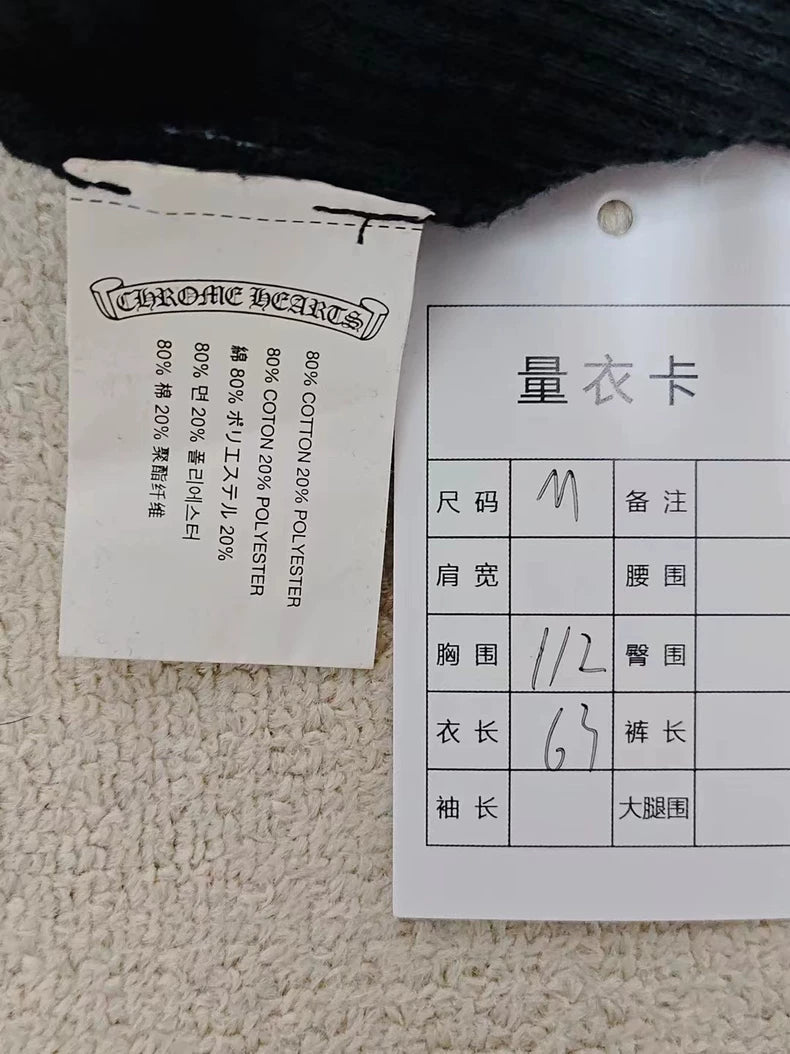 CHROME HEARTS
80% COTTON 20% POLYESTER
80% COTON 20% POLYESTER
綿 80% ポリエステル 20%
80% 면 20% 폴리에스터
80% 棉 20% 聚酯纤维
量衣卡
尺码 M 备注
肩宽 腰围
胸围 112 臀围
衣长 63 裤长
袖长 大腿围